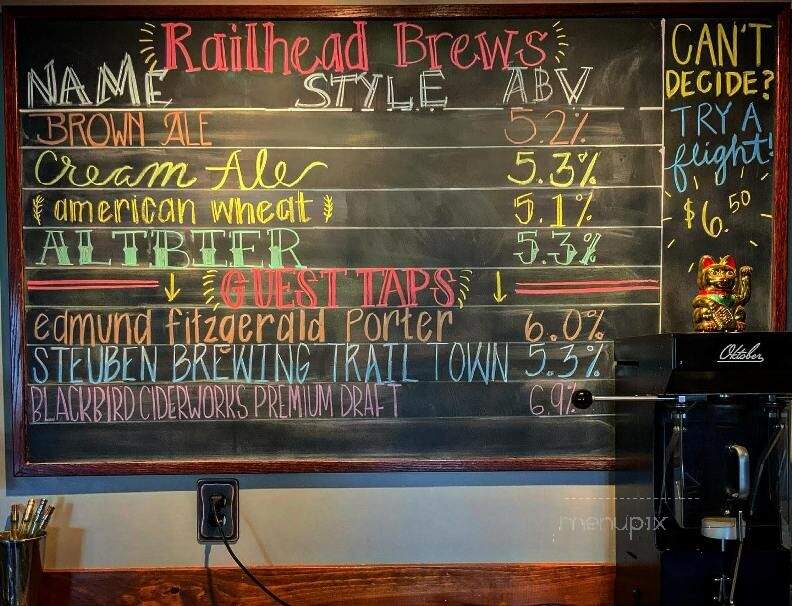 Railhead Brews
NAME STYLE ABV
BROWN ALE 5.2%
Cream Ale 5.3%
american wheat 5.1%
ALTBIER 5.3%
GUEST TAPS
edmund fitzgerald Porter 6.0%
STEUBEN BREWING TRAIL TOWN 5.3%
BLACKBIRD CIDERWORKS PREMIUM DRAFT 6.9%
CAN'T
DECIDE?
TRY A
flight!
$6.50
Oktober
menupix